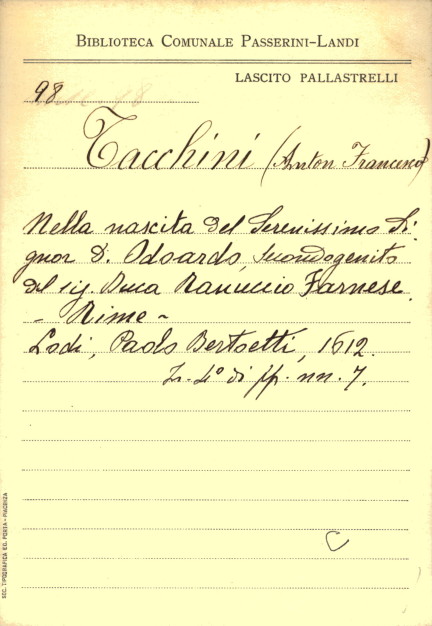 BIBLIOTECA COMUNALE PASSERINI-LANDI
LASCITO PALLASTRELLI
98
Tacchini (Anton Francesco)
Nella nascita del Serenissimo Si-
gnor D. Odoardo, secondogenito
del sig. Duca Ranuccio Farnese.
- Rime -
Lodi, Paolo Bertoetti, 1612.
In-4° di pp. nn. 7.
C
SOC. TIPOGRAFICA ED. PORTA - PIACENZA